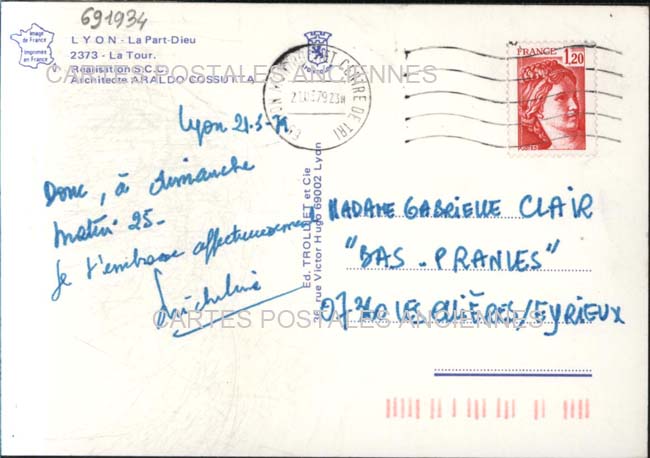 691934
Image
de France
Imprimée
en France
LYON - La Part-Dieu
2373 - La Tour.
Réalisation S.C.C.
Architecte ARALDO COSSUTTA
CARTES POSTALES ANCIENNES
CENTRE DE TRI
FRANCE
1,20
Lyon 21-3-79
Donc, à dimanche
matin 25-
Je t'embrasse affectueusement
Micheline
Ed. TROLLIET et Cie
36, rue Victor Hugo 69002 Lyon
MADAME GABRIELLE CLAIR
"BAS-PRANLES"
LES OLLIÈRES/EYRIEUX
CARTES POSTALES ANCIENNES